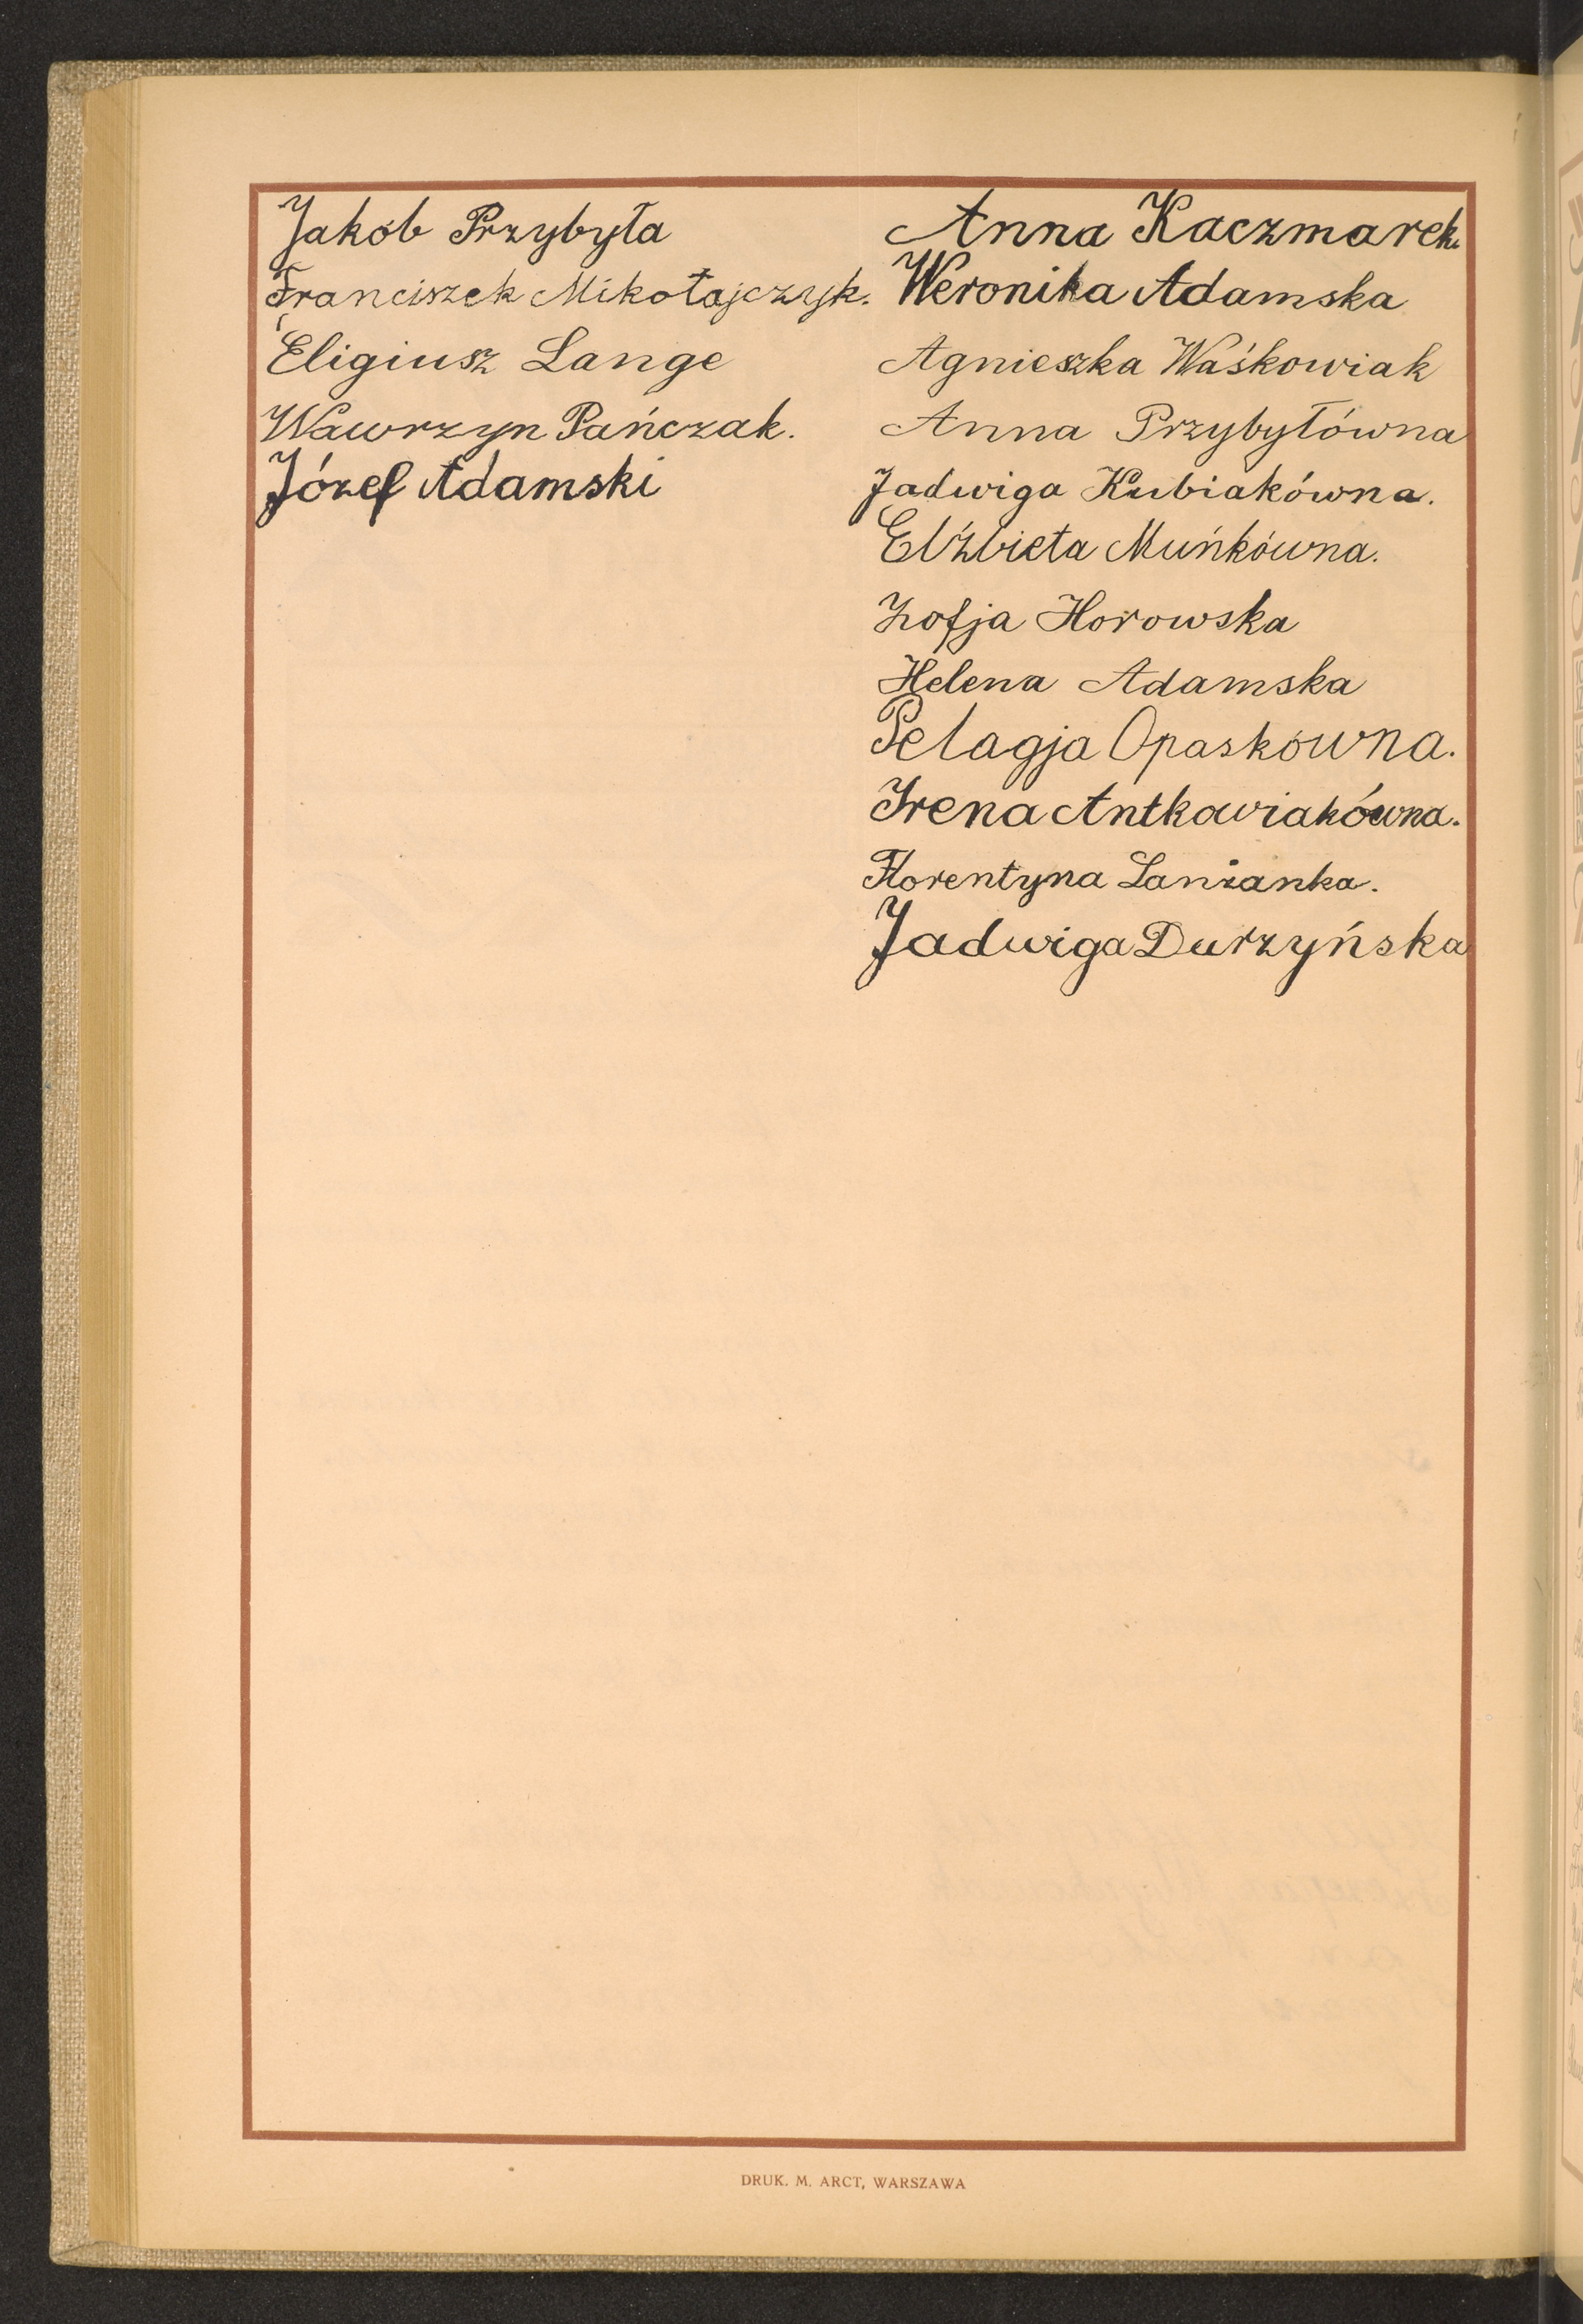 Jakób Przybyła
Franciszek Mikołajczyk.
Eligiusz Lange
Wawrzyn Pańczak.
Józef Adamski
Anna Kaczmarek.
Weronika Adamska
Agnieszka Waśkowiak
Anna Przybyłówna
Jadwiga Kubiakówna.
Elżbieta Muńkówna.
Zofja Horowska
Helena Adamska
Pelagja Opaskówna.
Irena Antkowiakówna.
Florentyna Lanżanka.
Jadwiga Durzyńska
DRUK. M. ARCT, WARSZAWA